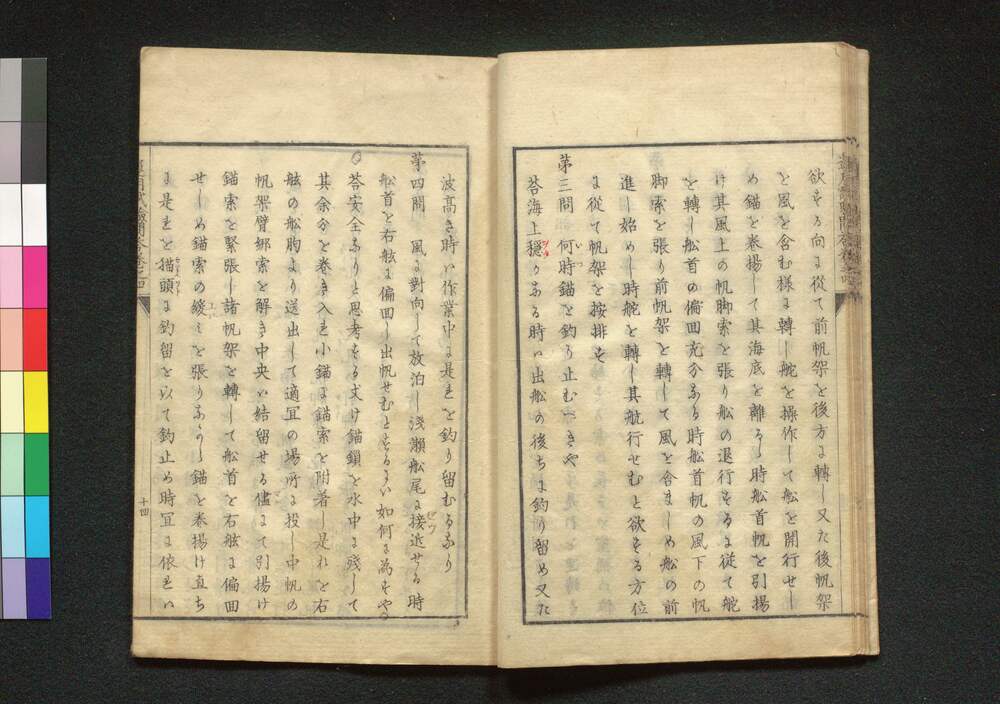 欲する向に従て前帆架を後方に轉し又た後帆架
を風を含む様に轉し舵を操作して舩を開行せし
め錨を巻揚して其海底を離るゝ時舩首帆を引揚
け其風上の帆脚索を張り舩の退行するに従て舵
を轉し舩首の偏囬充分なる時舩首帆の風下の帆
脚索を張り前帆架を轉して風を含ましめ舩の前
進し始めし時舵を轉し其航行せむと欲する方位
に従て帆架を按排す
第三問 何時錨を釣り止むへきや
答海上穏かなる時い出舩の後ちに釣り留め又た
波高き時い作業中に是れを釣り留むるなり
第四問 風に對向して放泊し浅瀬舩尾に接近せる時
舩首を右舷に偏囬し出帆せむとするにい如何に為すや
答安全なりと思考する丈け錨鎖を水中に残して
其余分を巻き入れ小錨に錨索を附着し是れを右
舷の舩胸より送出して適宜の場所に投し中帆の
帆架臂綁索を解き中央い結留せる儘にて引揚け
錨索を緊張し諸帆架を轉して舩首を右舷に偏囬
せしめ錨索の緩みを張りなから錨を巻揚け直ち
に是れを猫頭に釣留を以て釣止め時宜に依れい
十四